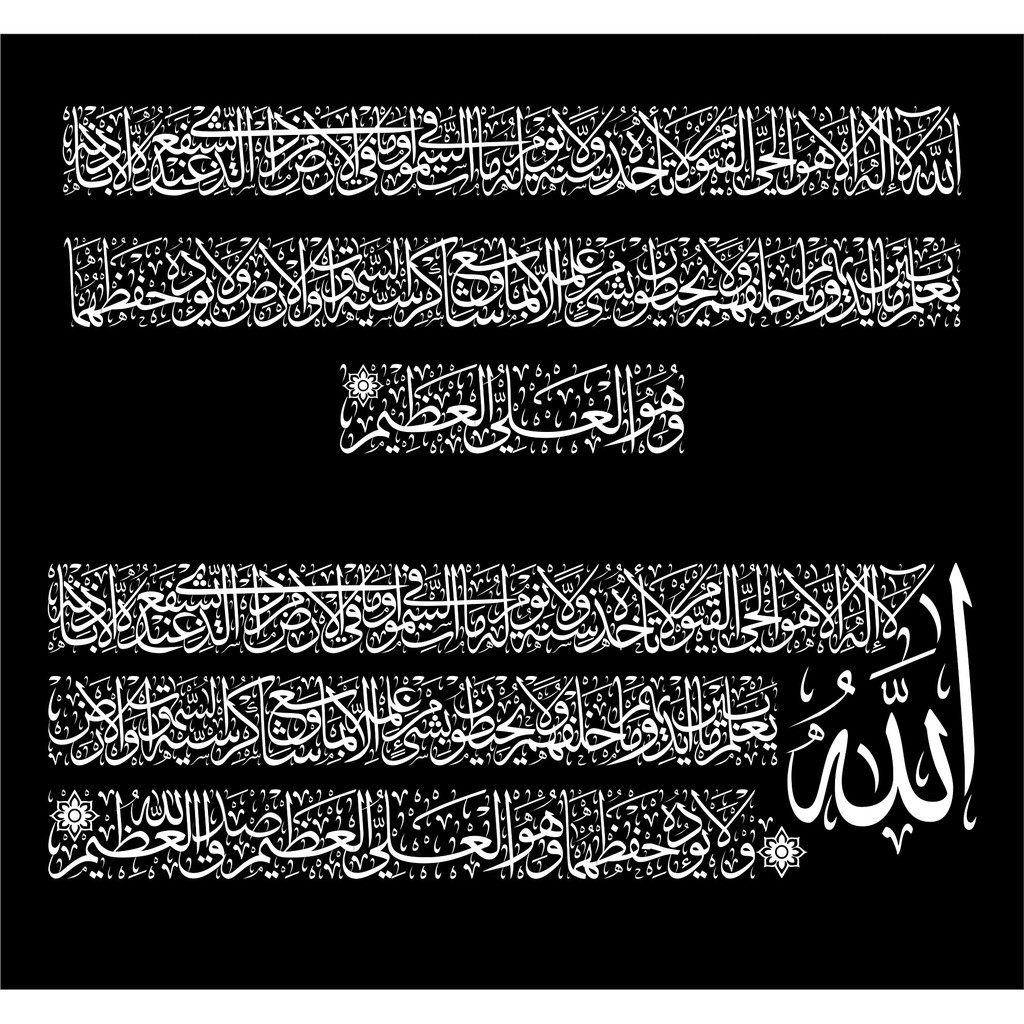 اللَّهُ لَا إِلَٰهَ إِلَّا هُوَ الْحَيُّ الْقَيُّومُ لَا تَأْخُذُهُ سِنَةٌ وَلَا نَوْمٌ لَهُ مَا فِي السَّمَٰوَاتِ وَمَا فِي الْأَرْضِ مَنْ ذَا الَّذِي يَشْفَعُ عِنْدَهُ إِلَّا بِإِذْنِهِ
يَعْلَمُ مَا بَيْنَ أَيْدِيهِمْ وَمَا خَلْفَهُمْ وَلَا يُحِيطُونَ بِشَيْءٍ مِنْ عِلْمِهِ إِلَّا بِمَا شَاءَ وَسِعَ كُرْسِيُّهُ السَّمَٰوَاتِ وَالْأَرْضَ وَلَا يَئُودُهُ حِفْظُهُمَا
وَهُوَ الْعَلِيُّ الْعَظِيمُ
اللَّهُ
لَا إِلَٰهَ إِلَّا هُوَ الْحَيُّ الْقَيُّومُ لَا تَأْخُذُهُ سِنَةٌ وَلَا نَوْمٌ لَهُ مَا فِي السَّمَٰوَاتِ وَمَا فِي الْأَرْضِ مَنْ ذَا الَّذِي يَشْفَعُ عِنْدَهُ إِلَّا بِإِذْنِهِ
يَعْلَمُ مَا بَيْنَ أَيْدِيهِمْ وَمَا خَلْفَهُمْ وَلَا يُحِيطُونَ بِشَيْءٍ مِنْ عِلْمِهِ إِلَّا بِمَا شَاءَ وَسِعَ كُرْسِيُّهُ السَّمَٰوَاتِ وَالْأَرْضَ
وَلَا يَئُودُهُ حِفْظُهُمَا وَهُوَ الْعَلِيُّ الْعَظِيمُ صَدَقَ اللَّهُ الْعَظِيمُ